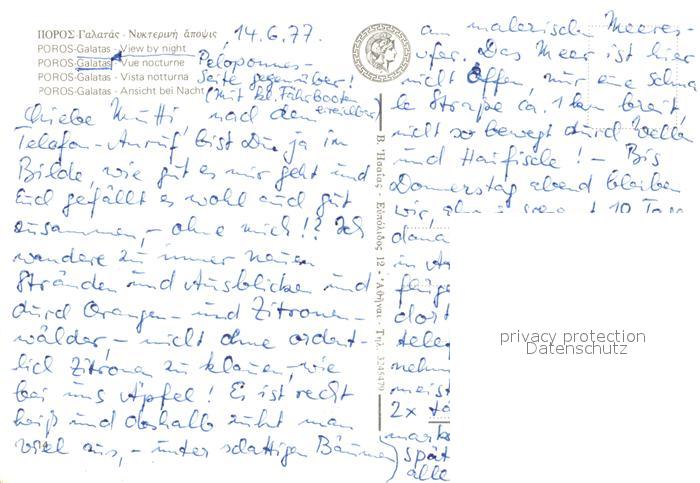 ΠΟΡΟΣ-Γαλατάς - Νυκτερινή άποψις
POROS-Galatas - View by night
POROS-Galatas - Vue nocturne
POROS-Galatas - Vista notturna
POROS-Galatas - Ansicht bei Nacht
14.6.77.
Peloponnes-
Seite gegenüber!
(mit kl. Fährbooten
erreichbar)
Liebe Mutti, nach dem
Telefon-Anruf bist Du ja im
Bilde, wie gut es mir geht und
Euch gefällt es wohl auch gut
zusammen, - ohne mich!? Ich
wandere zu immer neuen
Stränden und Ausblicken und
durch Orangen- und Zitronen-
wälder, - nicht ohne ordent-
lich Zitronen zu klauen, wie
bei uns Äpfel! Es ist recht
heiß und deshalb ruht man
viel aus, - unter schattigen Bäumen
Β. Ἡσαΐας - Εὐπόλιδος 12 - Ἀθῆναι - Τηλ. 3245479
am malerischen Meeres-
ufer. Das Meer ist hier
nicht offen, nur eine schma
le Straße ca. 1 km breit,
nicht so bewegt durch Wellen
und Haifische! - Bis
Donnerstag abend bleiben
wir, 10 Tage
dana
in
flüge
dort
tele
nehm
meist
2x
mark
spät
alle
privacy protection
Datenschutz